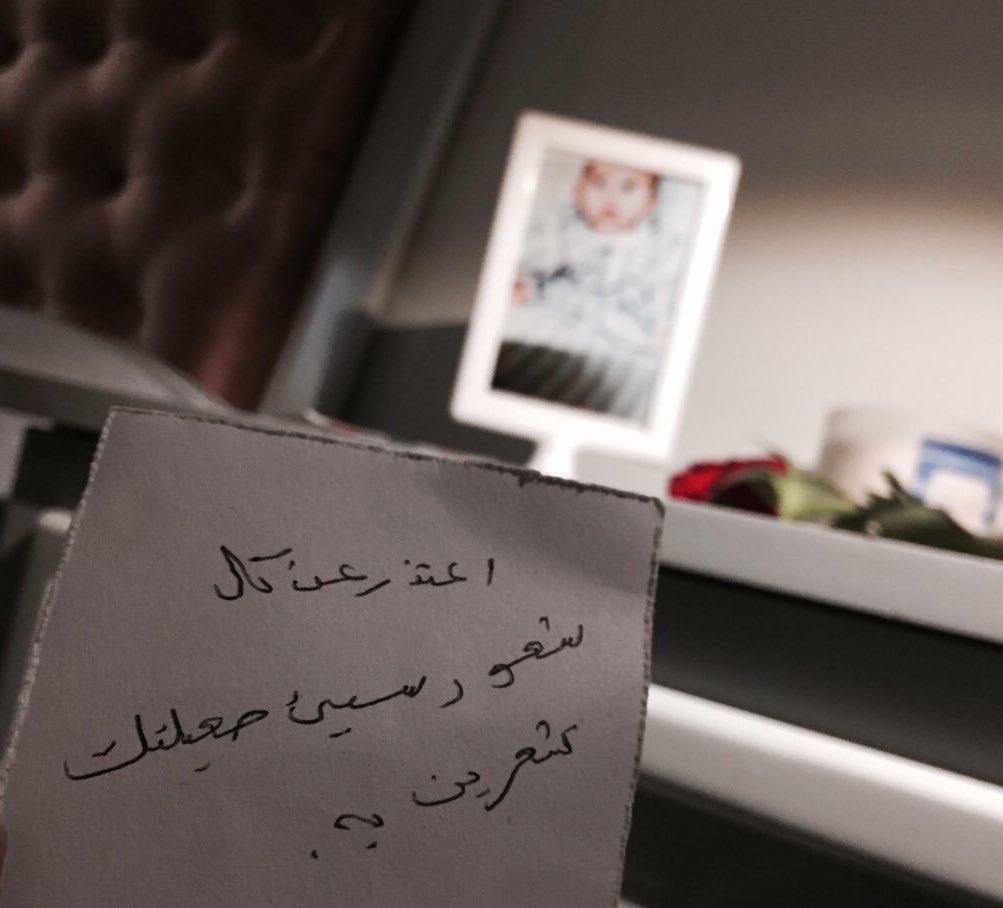 اعتذر عن كل
شعور سيئ جعلتك
تشعرين به.